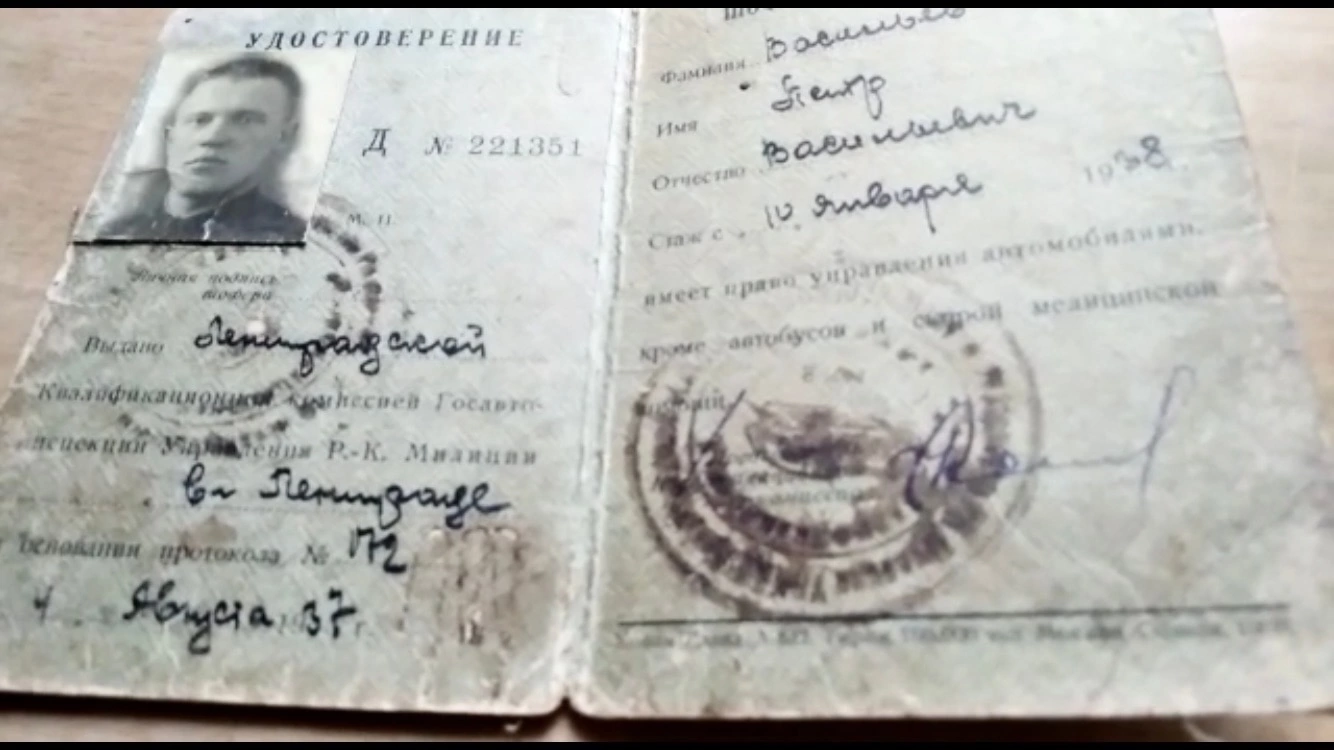 УДОСТОВЕРЕНИЕ
Д № 221351
М. П.
Личная подпись
шофера
Выдано Ленинградской
Квалификационной комиссией Госавто-
инспекции Управления Р.-К. Милиции
в г. Ленинграде
основании протокола № 172
4 Августа 1937 г.
Фамилия Васильев
Имя Петр
Отчество Васильевич
Стаж с 10 января 1938
имеет право управления автомобилями,
кроме автобусов и скорой медицинской
помощи